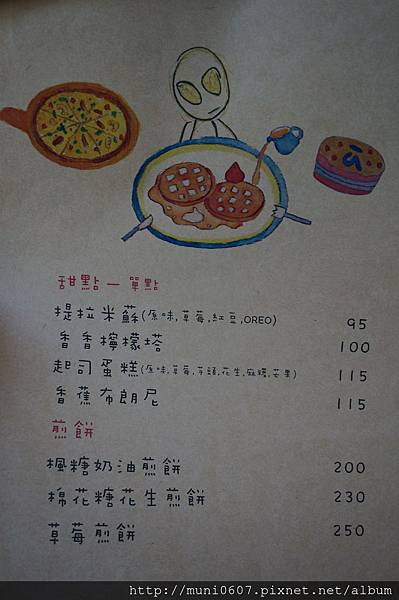 甜點一單點
提拉米蘇(原味,草莓,紅豆,OREO) 95
香香檸檬塔 100
起司蛋糕(原味,草莓,芋頭,花生,麻糬,芒果) 115
香蕉布朗尼 115
煎餅
楓糖奶油煎餅 200
棉花糖花生煎餅 230
草莓煎餅 250
http://muni0607.pixnet.net/album